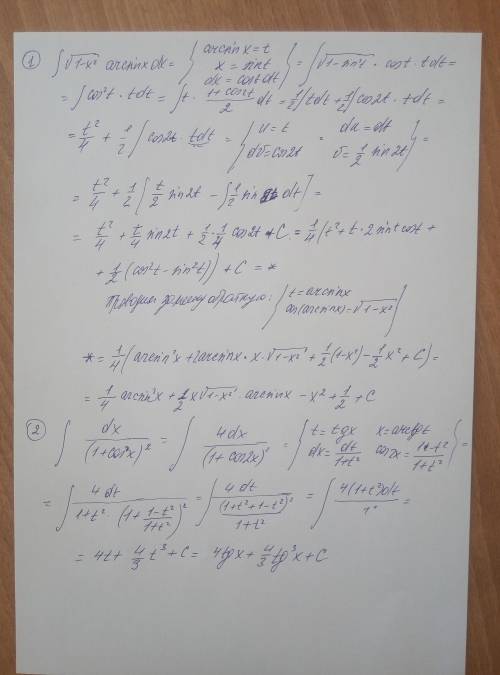 ① ∫√(1-x²) arcsinx dx = { arcsinx = t, x = sint, dx = costdt } = ∫√(1-sin²t) · cost · tdt =
= ∫cos²t · tdt = ∫t · (1+cos2t)/2 dt = 1/2∫tdt + 1/2∫cos2t · tdt =
= t²/4 + 1/2 ∫cos2t · tdt = { u = t du = dt, dv = cos2t v = 1/2 sin2t } =
= t²/4 + 1/2 [t/2 sin2t - ∫1/2 sin2t dt] =
= t²/4 + t/4 sin2t + 1/2 · 1/4 cos2t + C = 1/4(t² + t · 2sint cost +
+ 1/2 (cos²t - sin²t)) + C = *
Проводим замену обратную: { t = arcsinx, cos(arcsinx) = √(1-x²) }
* = 1/4 (arcsin²x + 2arcsinx · x · √(1-x²) + 1/2(1-x²) - 1/2 x² + C) =
= 1/4 arcsin²x + 1/2 x√(1-x²) · arcsinx - x² + 1/2 + C
② ∫ dx/(1+cos²x)² = ∫ 4dx/(1+cos2x)² = { t = tgx x = arctgt, dx = dt/(1+t²) cos2x = (1-t²)/(1+t²) } =
= ∫ 4dt/(1+t² · (1 + (1-t²)/(1+t²))²) = ∫ 4dt/((1+t²+1-t²)²/(1+t²)) = ∫ 4(1+t²)dt/1² =
= 4t + 4/3 t³ + C = 4tgx + 4/3 tg³x + C